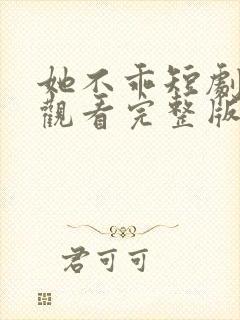 她不乖短劇
觀看完整版
君可可